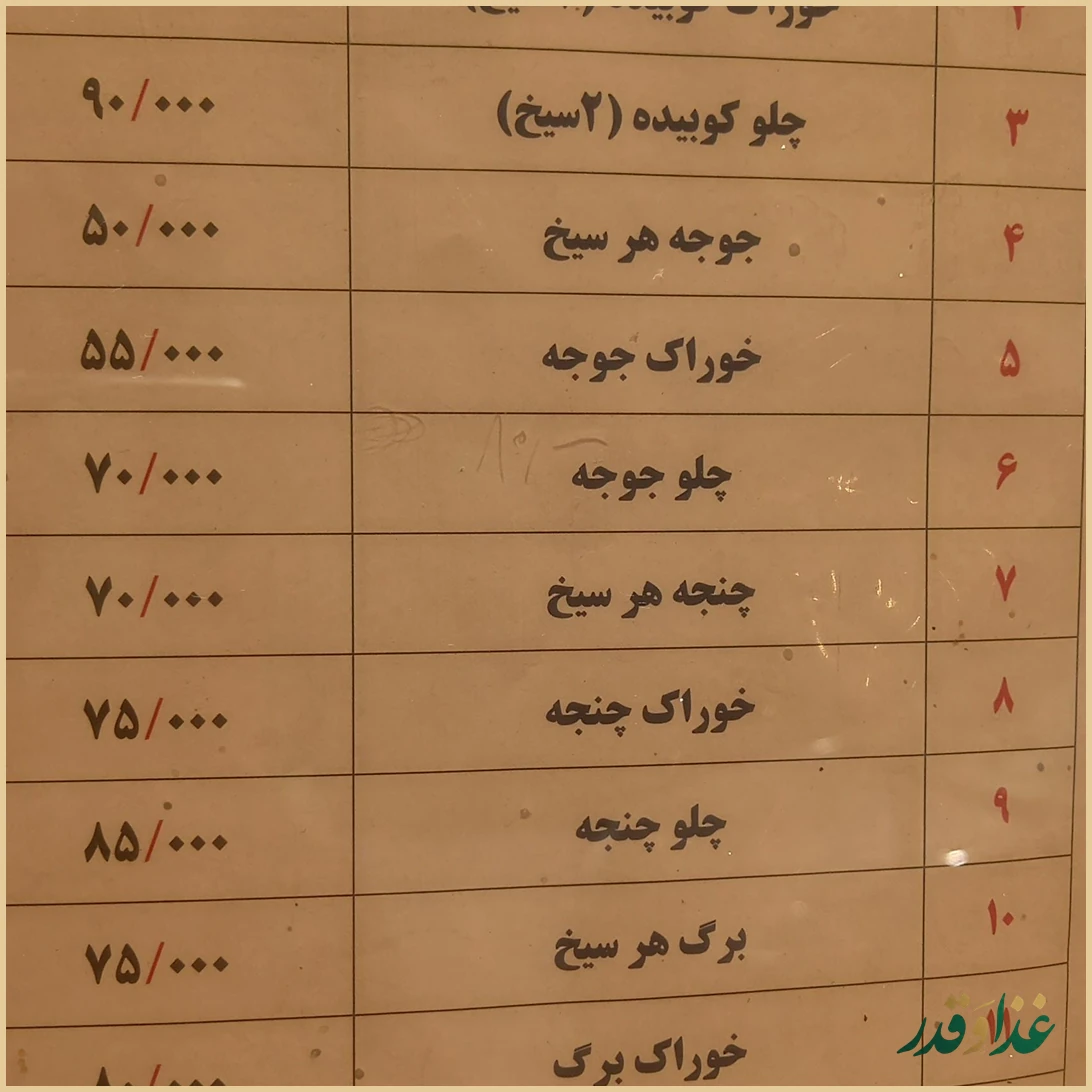 ۳ چلو کوبیده (۲سیخ) ۹۰/۰۰۰
۴ جوجه هر سیخ ۵۰/۰۰۰
۵ خوراک جوجه ۵۵/۰۰۰
۶ چلو جوجه ۷۰/۰۰۰
۷ چنجه هر سیخ ۷۰/۰۰۰
۸ خوراک چنجه ۷۵/۰۰۰
۹ چلو چنجه ۸۵/۰۰۰
۱۰ برگ هر سیخ ۷۵/۰۰۰
۱۱ خوراک برگ ۸۰/۰۰۰
غذا و قدر